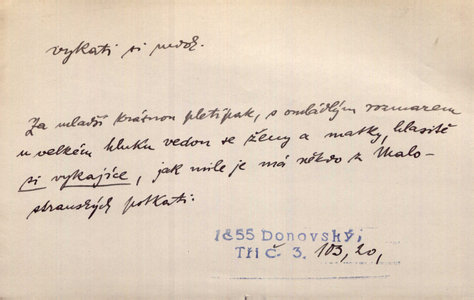 vykati si nedok.
Za mladší krásnou pletipak, s omládlým rozmarem
u velkém hluku vedou se ženy a matky, hlasitě
si vykajíce, jak mile je má někdo z Malo-
stranských potkati.
1855 Donovský,
Tři č. 3. 103, 20,